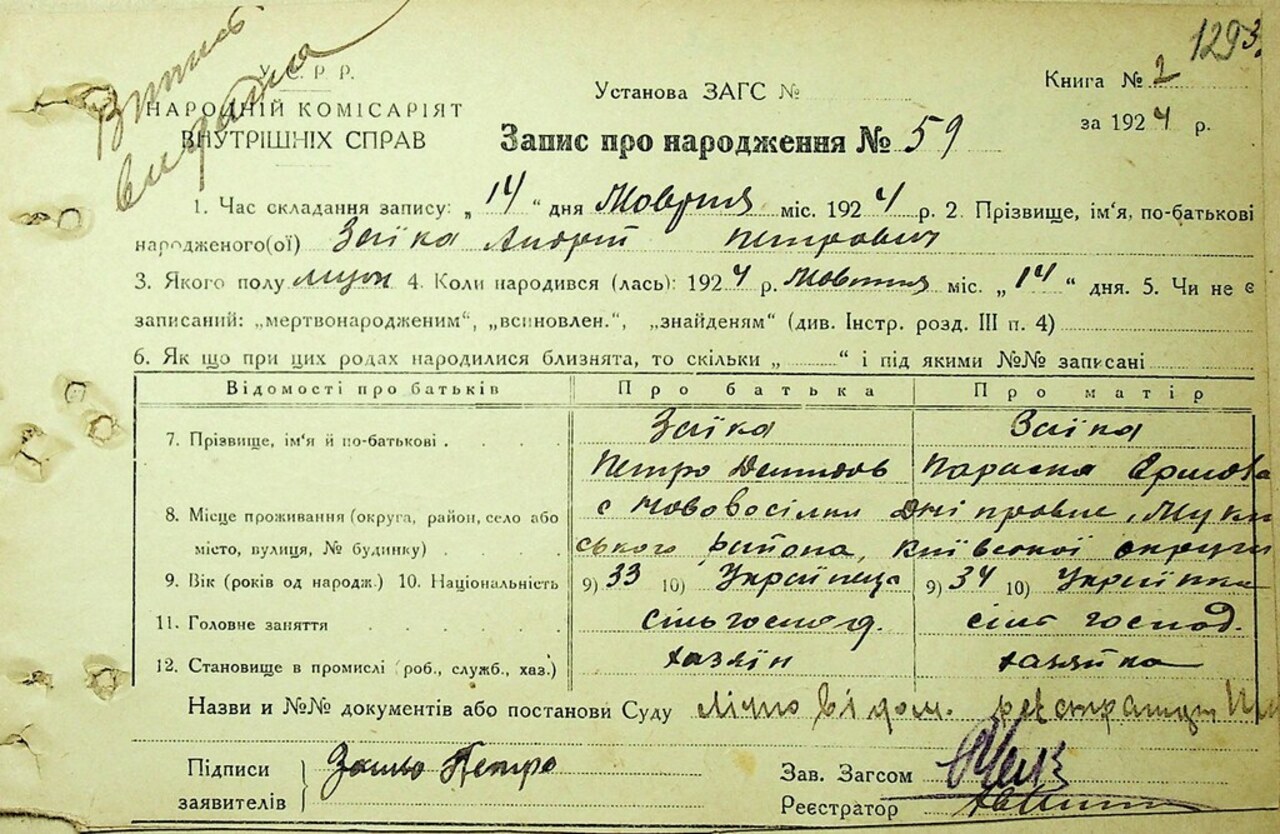 1293.
Випись
видана
У. С. Р. Р.
НАРОДНІЙ КОМІСАРІЯТ
ВНУТРІШНІХ СПРАВ
Установа ЗАГС №
Книга № 2
за 1924 р.
Запис про народження № 59
1. Час складання запису: „ 14 “ дня Жовтня міс. 1924 р. 2. Прізвище, ім'я, по-батькові
народженого(ої) Заїка Андрій Петрович
3. Якого полу муж 4. Коли народився (лась): 1924 р. Жовтня міс. „ 14 “ дня. 5. Чи не є
записаний: „мертвонародженим“, „всиновлен.“, „знайденям“ (див. Інстр. розд. III п. 4)
6. Як що при цих родах народилися близнята, то скільки „ “ і під якими №№ записані
Відомості про батьків Про батька Про матір
7. Прізвище, ім'я й по-батькові . Заїка Заїка
Петро Параска
8. Місце проживання (округа, район, село або с Нововосілки Дніпровые,
місто, вулиця, № будинку) ського района, Київської округи
9. Вік (років од народж.) 10. Національність 9) 33 10) Українець 9) 34 10) Українка
11. Головне заняття сільгоспод. сіль господ.
12. Становище в промислі (роб., служб., хаз.) хазяїн хазяйка
Назви и №№ документів або постанови Суду лічно відом.
Підписи
заявителів
Петро
Зав. Загсом
Реєстратор